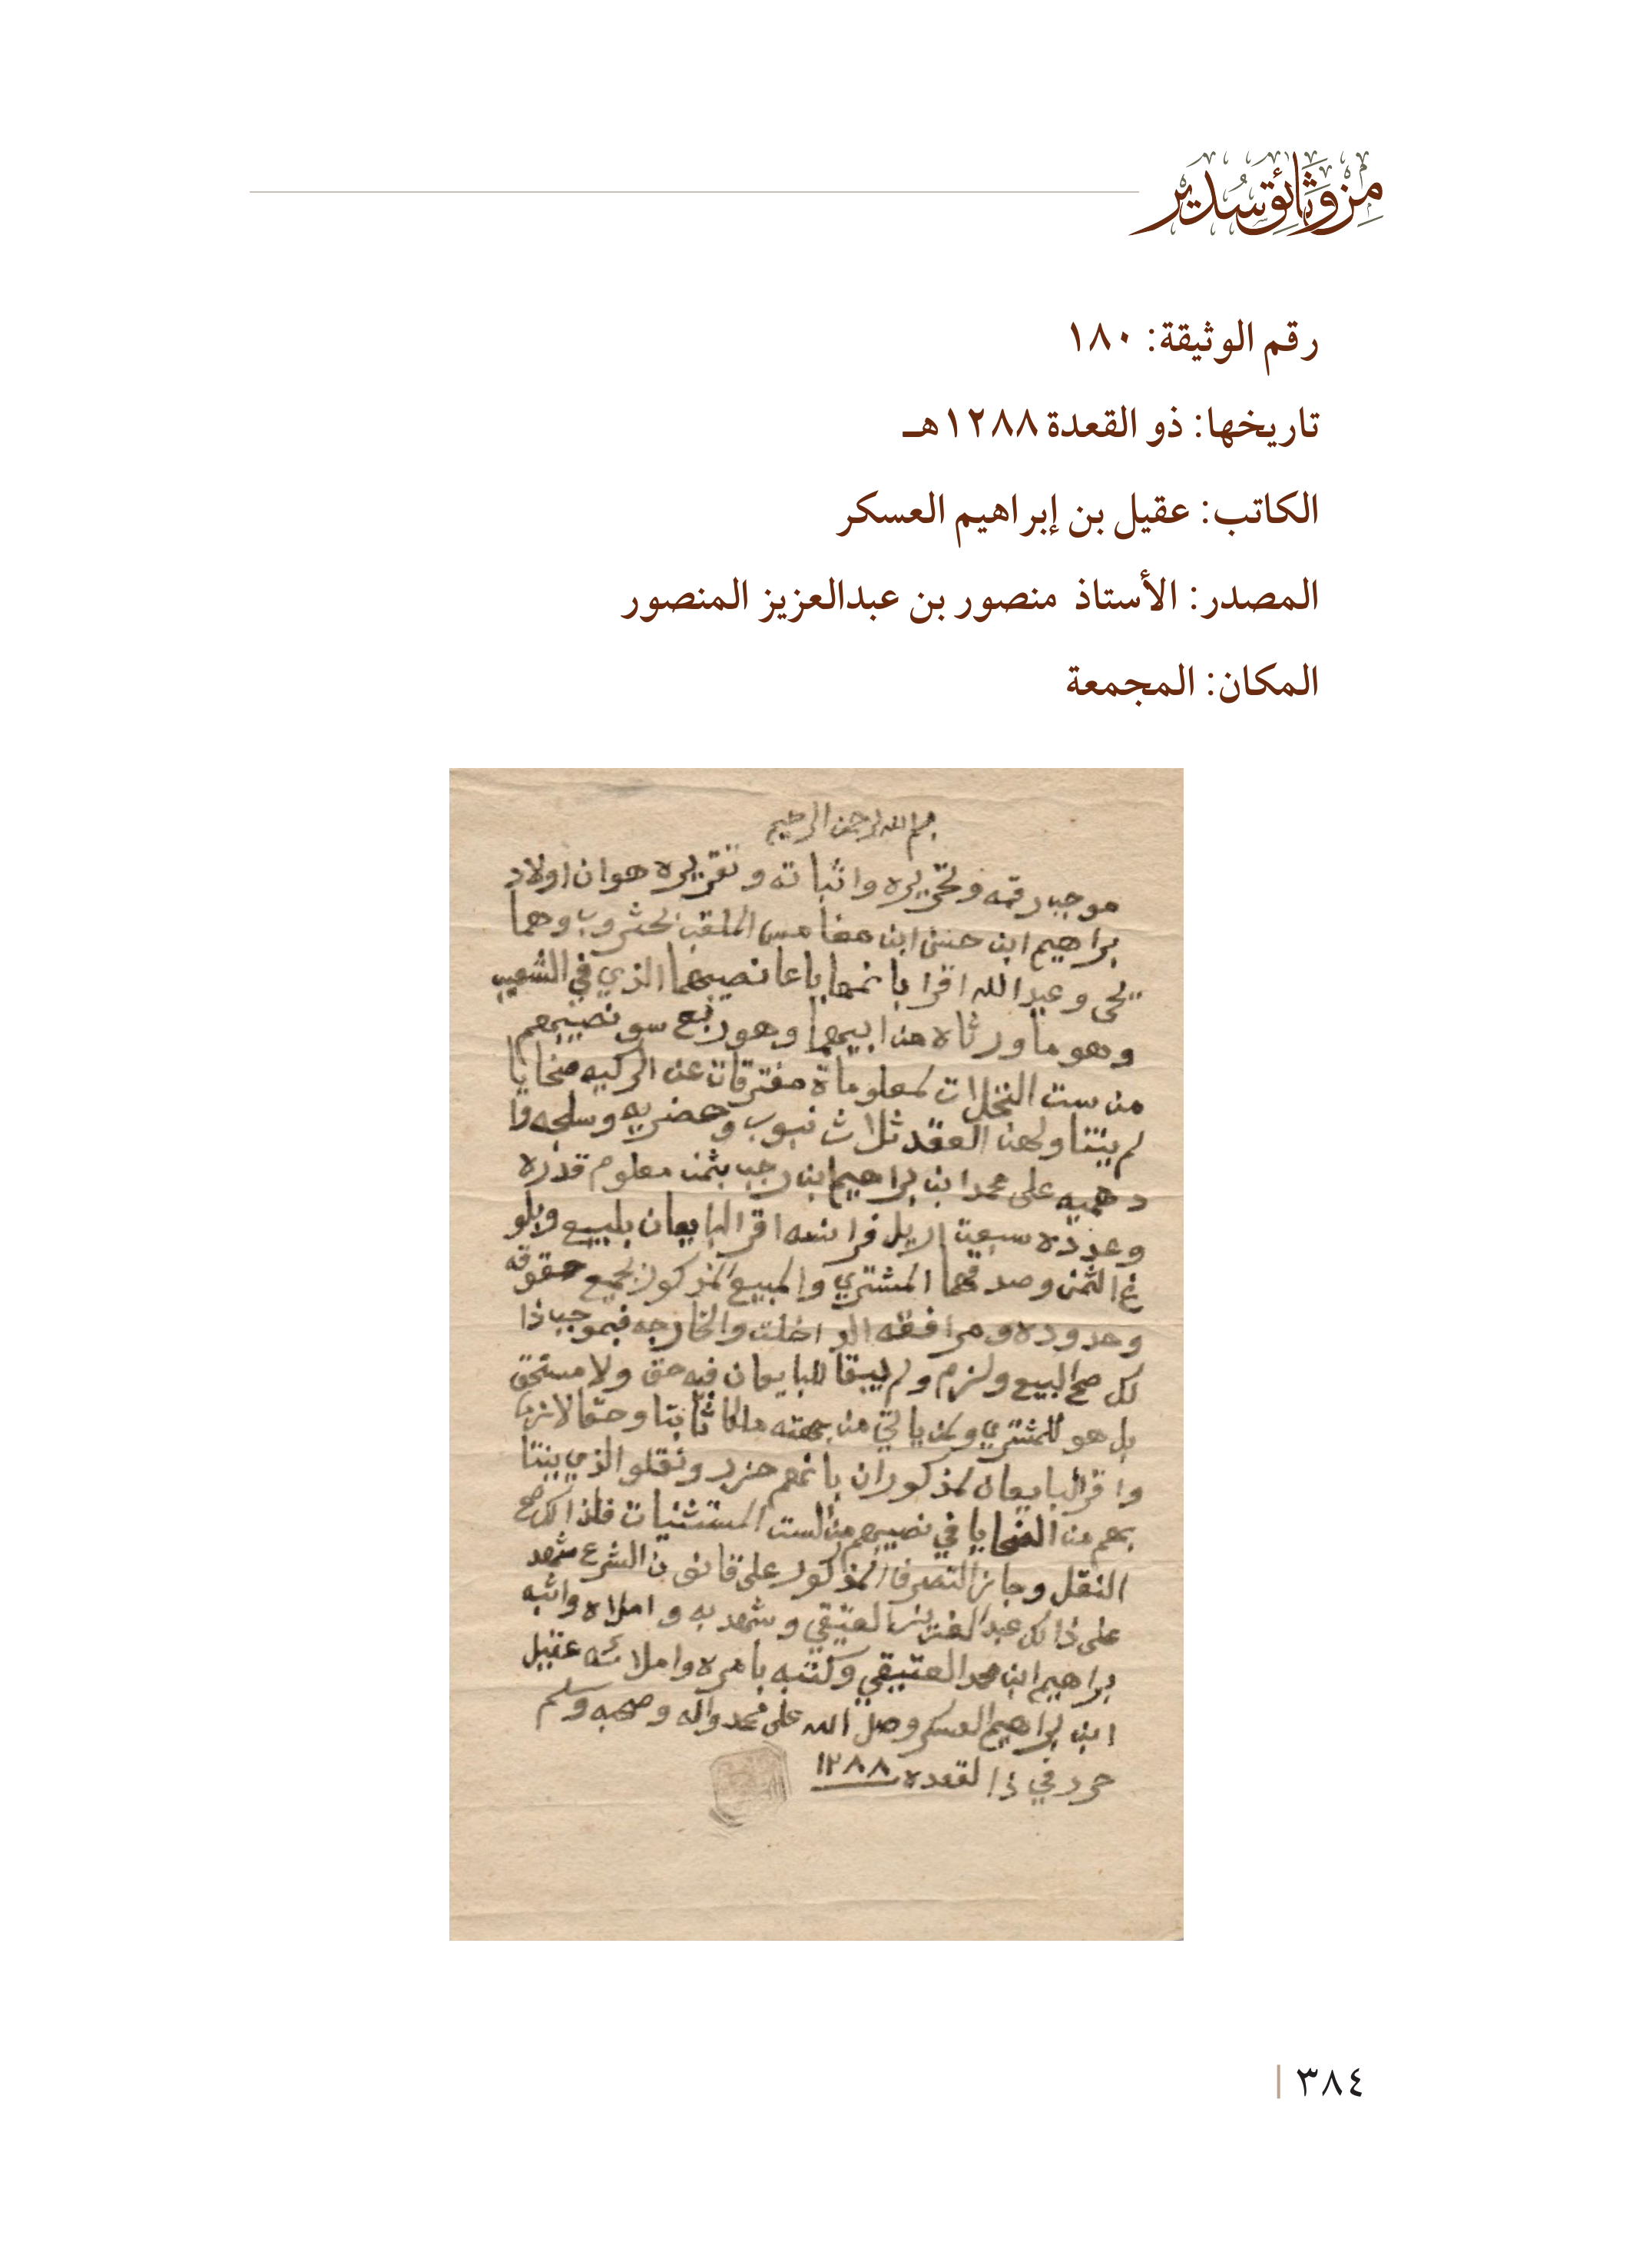 من وثائق سدير
رقم الوثيقة: ١٨٠
تاريخها: ذو القعدة ١٢٨٨هـ
الكاتب: عقيل بن إبراهيم العسكر
المصدر: الأستاذ منصور بن عبدالعزيز المنصور
المكان: المجمعة
بسم الله الرحمن الرحيم
موجب رقمه وتحريره واثباته وتقريره هو ان اولاد
براهيم ابن حنين ابن مغامس الملقب بحثروب وهما
يحي وعبدالله اقرا بانهما باعا نصيبهما الذي في الشعيب
وهو ما ورثاه من ابيهما وهو ربع سو نصيبهم
من ست النخلات لمعلوماة مفترقات عن الركيه ضحايا
لم بيننا ولهن العقد ثلاث نبوب وحضريه وسلجه وا
دهميه على محمد ابن براهيم ابن رجب بثمن معلوم قدره
وعدده سبعة اريل فرانسه اقر البايعان بلبيع وبلو
غ الثمن وصدقهما المشتري والمبيع المذكور بجميع حقوقه
وحدوده ومرافقه الداخلت والخارجه فبموجب ذا
لك صح البيع ولزم ولم يبقا للبايعان فيه حق ولا مستحق
بل هو للمشتري ولمن ياتي من جهته ملكا ثابتا وحقا لازما
واقر البايعان لمذكوران بانهم حزرو ونقلو الذي بيننا
بهم من الضحايا في نصيبهم من الست المستثنيات فلذالك صح
النقل وجاز التصرف المذكور على قانون الشرع شهد
على ذالك عبدالعزيز العتيقي وشهد به واملاه واثبه
براهيم ابن محمد العتيقي وكتبه بامره واملائه عقيل
ابن براهيم العسكر وصل الله على محمد واله وصحبه وسلم
حرر في ذا لقعده ١٢٨٨
٣٨٤